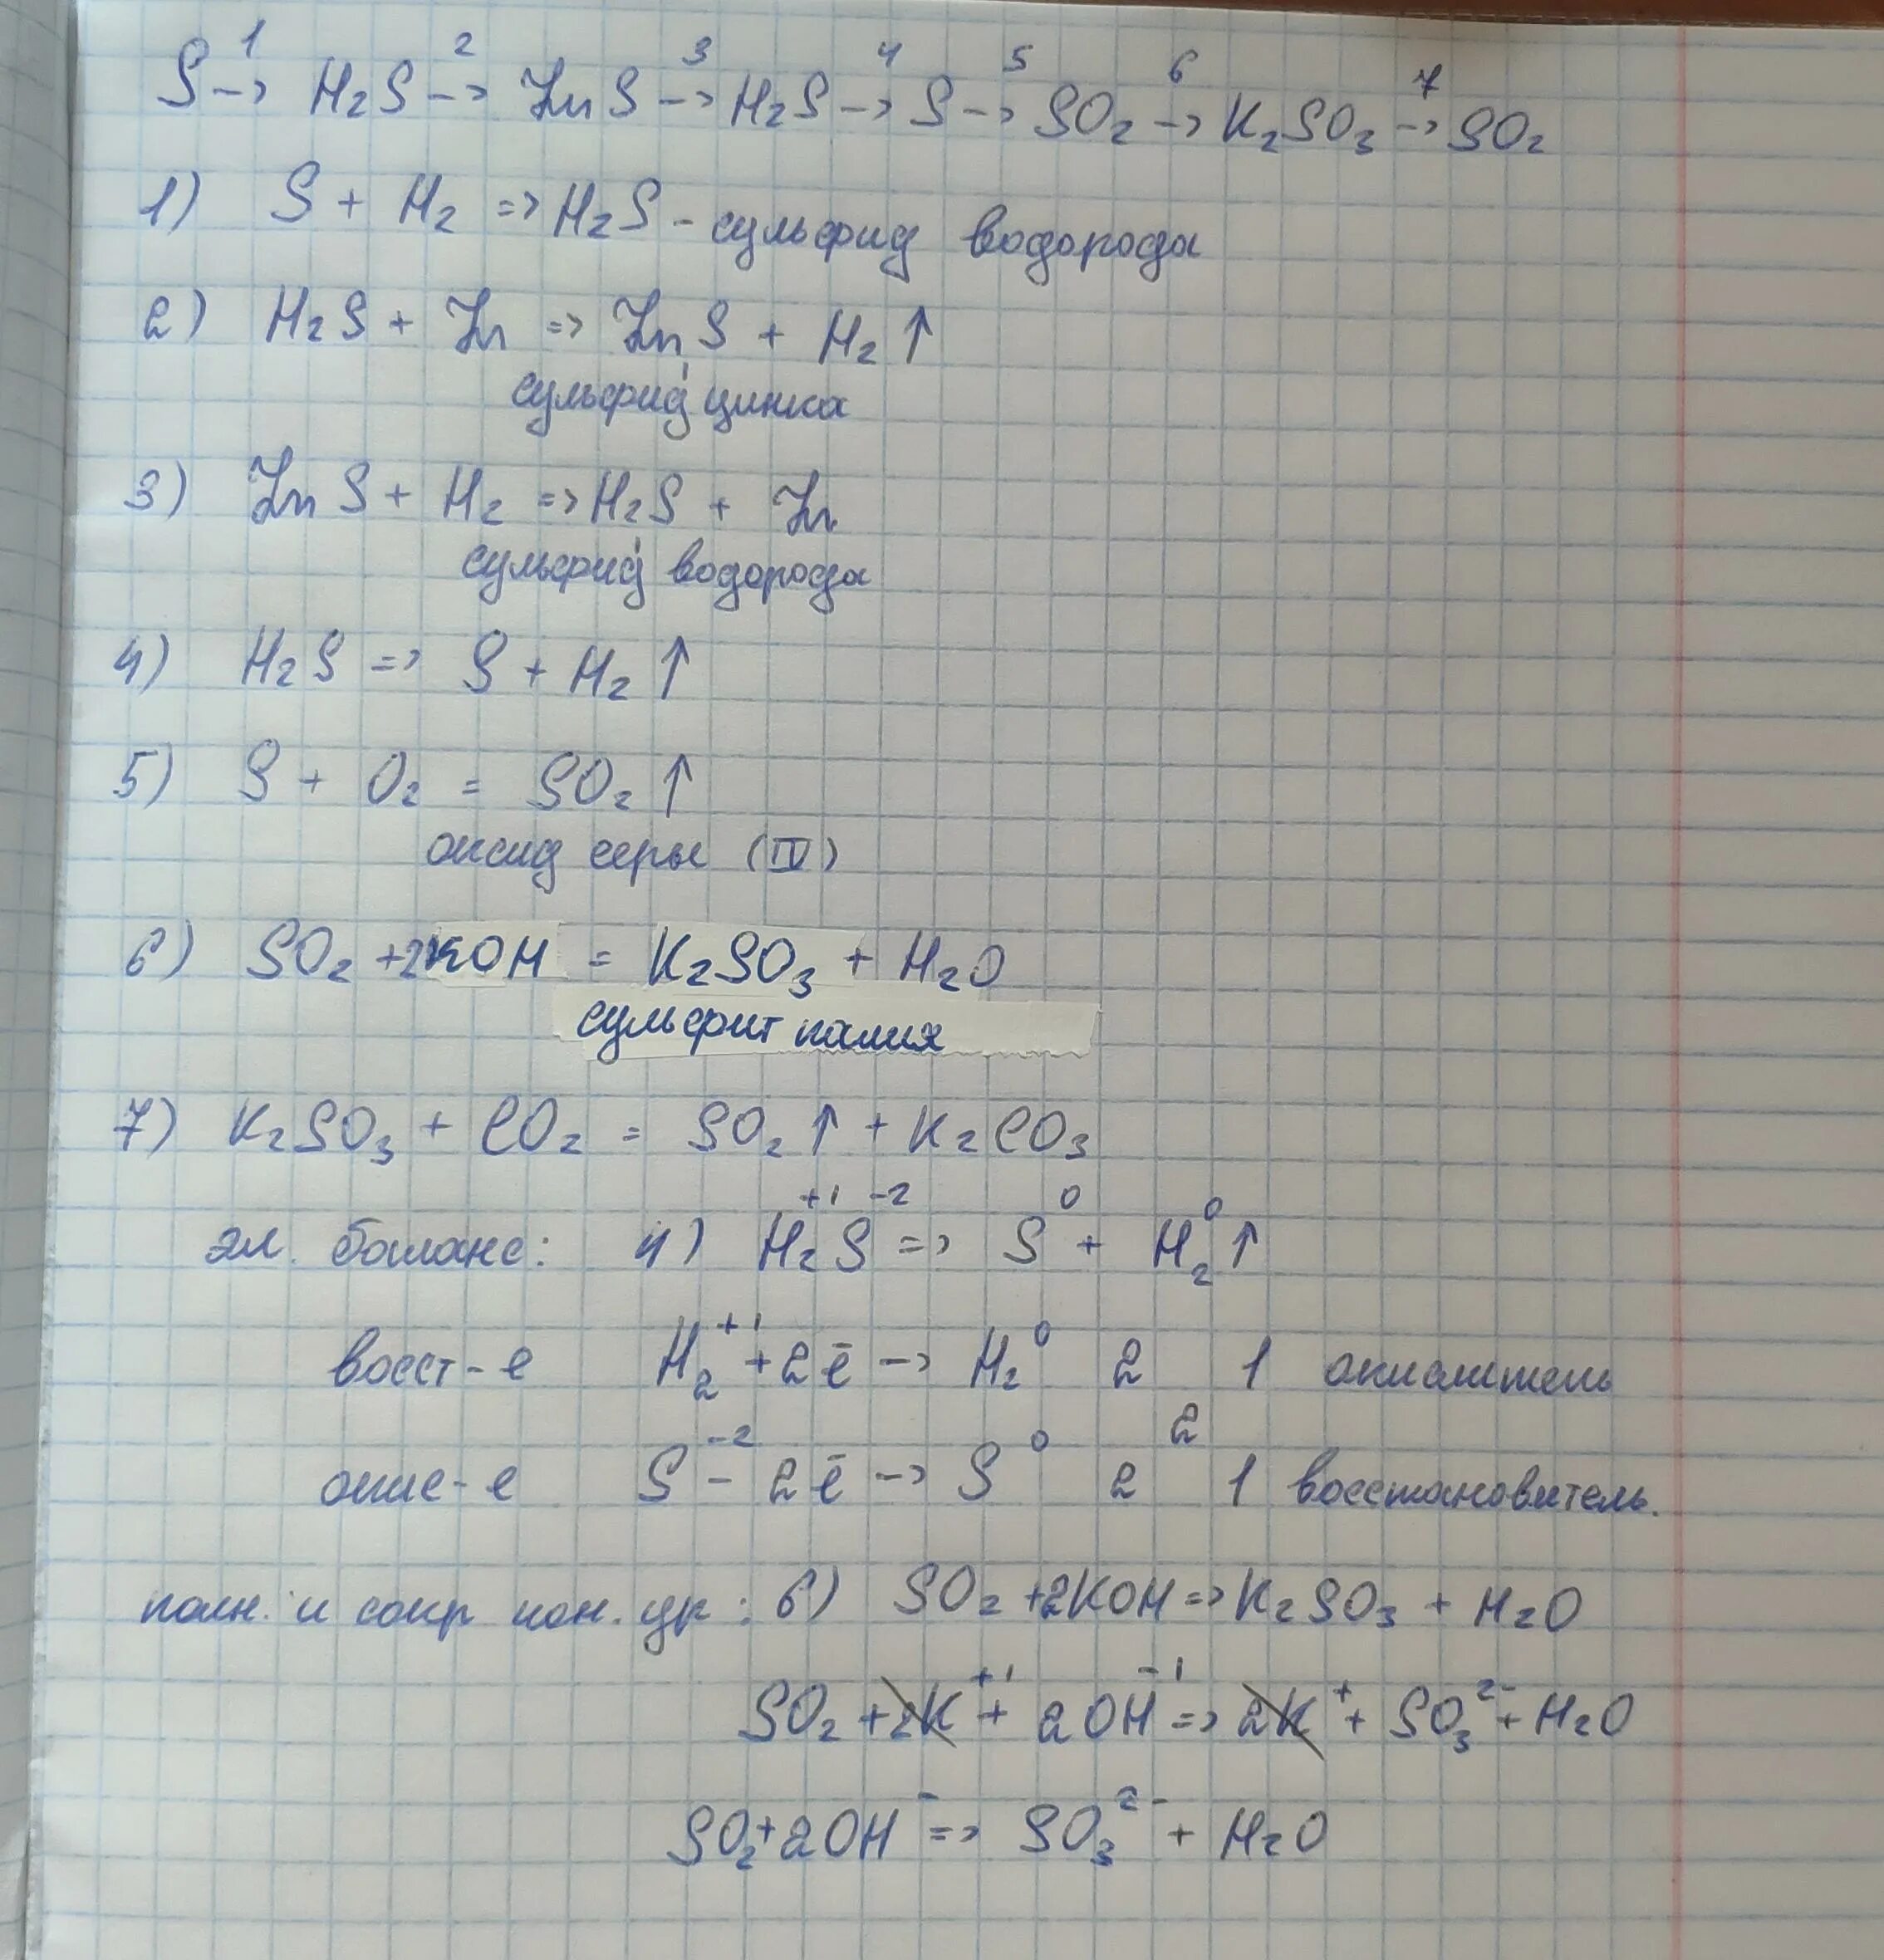 1 2 3 4 5 6 7
S -> H₂S -> ZnS -> H₂S -> S -> SO₂ -> K₂SO₃ -> SO₂
1) S + H₂ => H₂S - сульфид водорода
2) H₂S + Zn => ZnS + H₂↑
сульфид цинка
3) ZnS + H₂ => H₂S + Zn
сульфид водорода
4) H₂S => S + H₂↑
5) S + O₂ = SO₂↑
оксид серы (IV)
6) SO₂ + 2KOH = K₂SO₃ + H₂O
сульфит калия
7) K₂SO₃ + CO₂ = SO₂↑ + K₂CO₃
эл. баланс: 4) H₂⁺¹S⁻² => S⁰ + H₂⁰↑
восст-е H₂⁺¹ + 2ē -> H₂⁰ 2 1 окислитель
2
окис-е S⁻² - 2ē -> S⁰ 2 1 восстановитель.
полн. и сокр ион. ур: 6) SO₂ + 2KOH => K₂SO₃ + H₂O
SO₂ + 2K⁺¹ + 2OH⁻¹ => 2K⁺ + SO₃²⁻ + H₂O
SO₂ + 2OH⁻ => SO₃²⁻ + H₂O